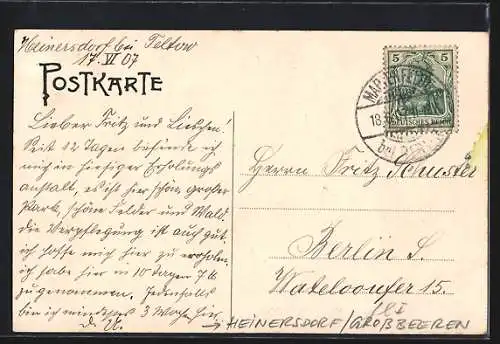 Heinersdorf bei Teltow
17. VI 07
POSTKARTE
Lieber Fritz und Lieschen!
Seit 12 Tagen befinde ich
mich in hiesiger Erholungs
anstalt, es ist hier schön, großer
Park, schöne Felder und Wald
die Verpflegung ist auch gut
ich hoffe mich hier zu erholen.
ich habe hier in 10 Tagen 7 ℔
zugenommen. Jedenfalls
bin ich mindestens 3 Wochen hier
d. U.
5 5
DEUTSCHES REICH
18.
Herrn Fritz Schuster
Berlin S.
Waterlooufer 15.
→ HEINERSDORF/GROßBEEREN